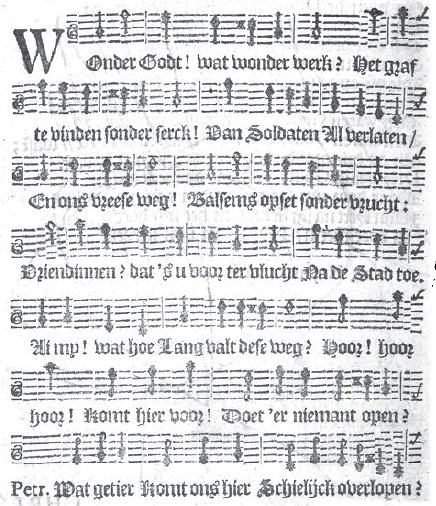 WOnder Godt! wat wonder werk? Het graf
te vinden sonder serck! Van Soldaten Al verlaten/
En ons vreese weg! Balsems opset sonder vrucht:
Vriendinnen? dat 's u voor ter vlucht Na de Stad toe.
Ai my! wat hoe Lang valt dese weg? Hoor! hoor
hoor! Komt hier voor! Doet 'er niemant open?
Petr. Wat getier Komt ons hier Schielijck overlopen?